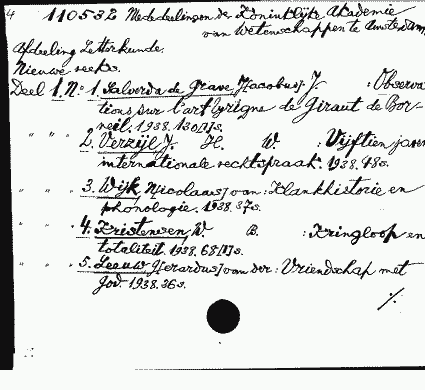 4 110532 Mededeelingen der Koninklijke Akademie
van Wetenschappen te Amsterdam.
Afdeeling Letterkunde.
Nieuwe reeks.
Deel 1. No. 1. Salverda de Grave, J[acobus] J. : Observa-
tions sur l'art lyrique de Giraut de Bor-
neil. 1938. 130[1]s.
" " " 2. Verzijl J. H. W. : Vijftien jaren
internationale rechtspraak. 1938. 48s.
" " " 3. Wijk, N[icolaas] van : Klankhistorie en
phonologie. 1938. 37s.
" " " 4. Kristensen, W. B. : Kringloop en
totaliteit. 1938. 68[1]s.
" " " 5. Leeuw, G[erardus] van der : Vriendschap met
God. 1938. 36s.
./.